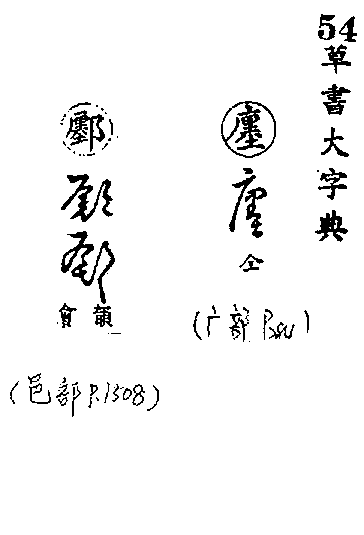 54
草書大字典
廛
仝
(广部
鄽
韻會
(邑部P.1508)